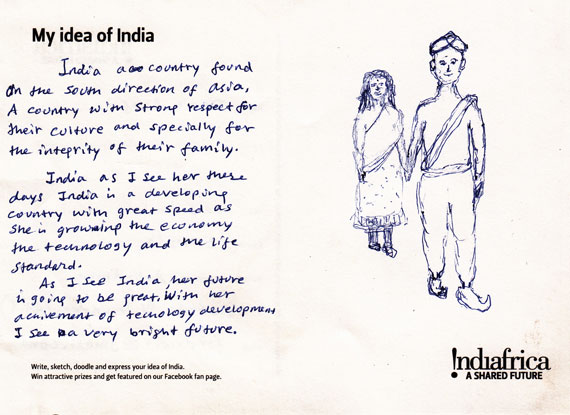 My idea of India
India a country found
on the south direction of asia,
A country with strong respect for
their culture and specially for
the integrity of their family.
India as I see her these
days India is a developing
country with great speed as
she is growing the economy
the technology and the life
standard.
As I see India her future
is going to be great. With her
acnivement of tecnology development
I see a very bright future.
Write, sketch, doodle and express your idea of India.
Win attractive prizes and get featured on our Facebook fan page.
!ndiafrica
A SHARED FUTURE